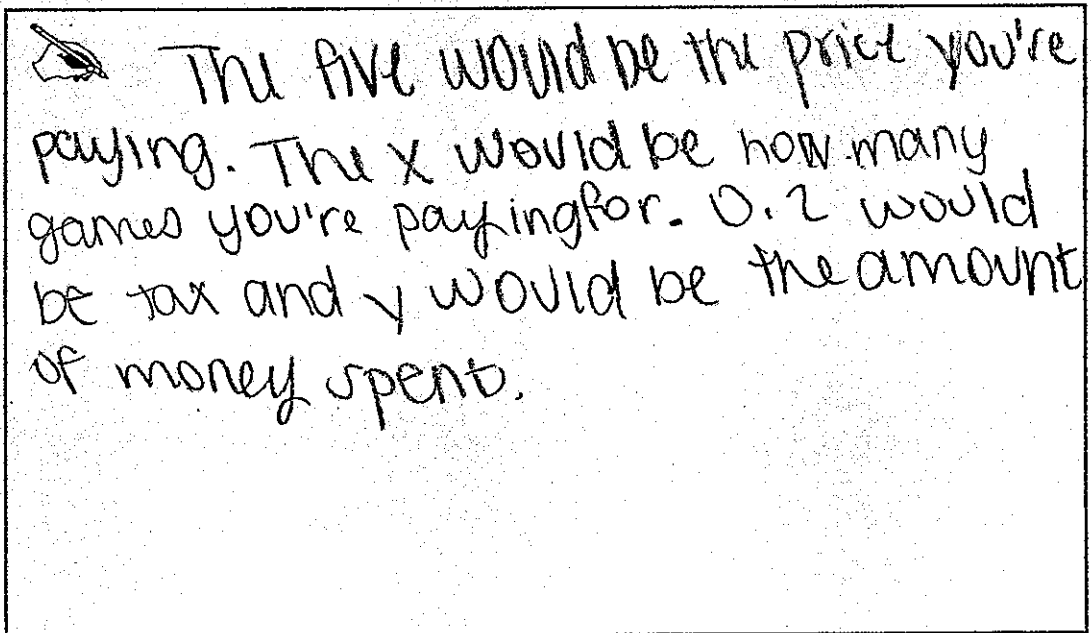 The five would be the price you're
paying. The x would be how many
games you're paying for. 0.2 would
be tax and y would be the amount
of money spent.